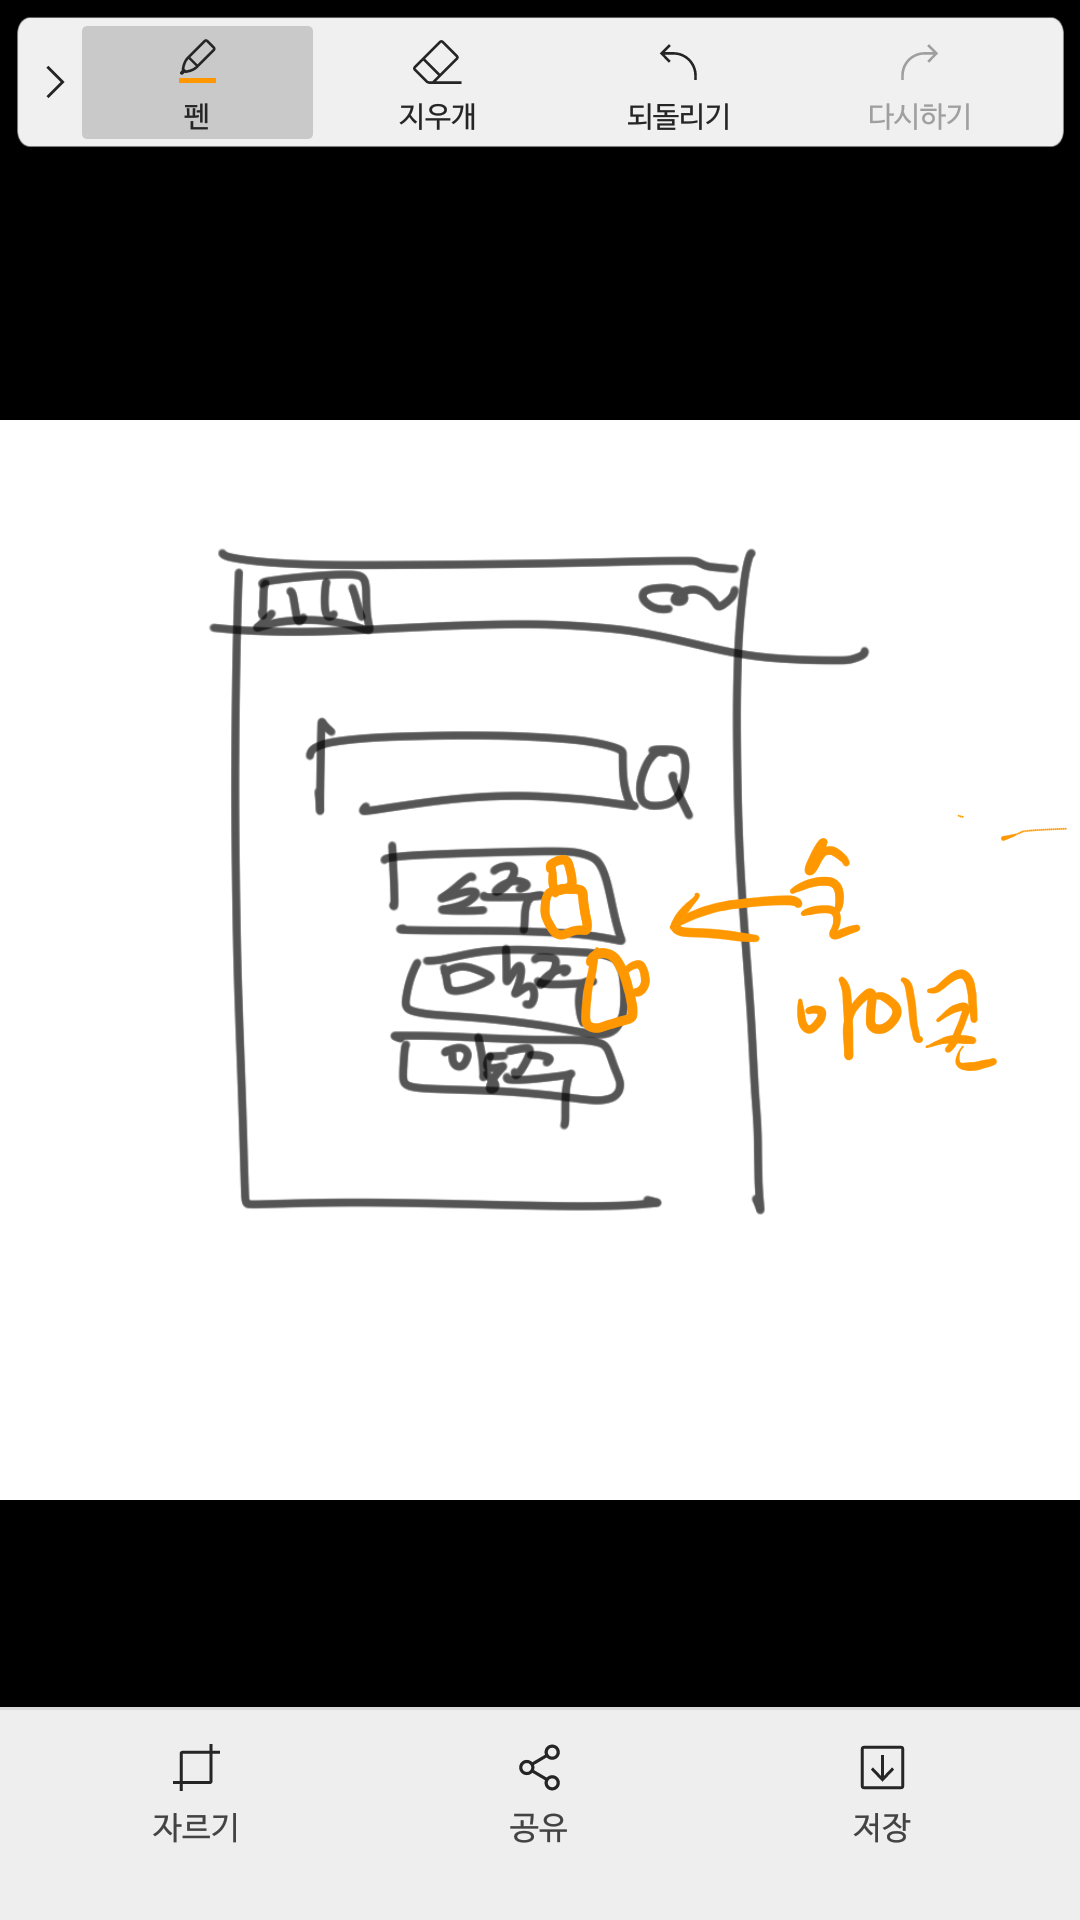 펜 지우개 되돌리기 다시하기
Q
소주
맥주
양주
술
아이콘
자르기 공유 저장